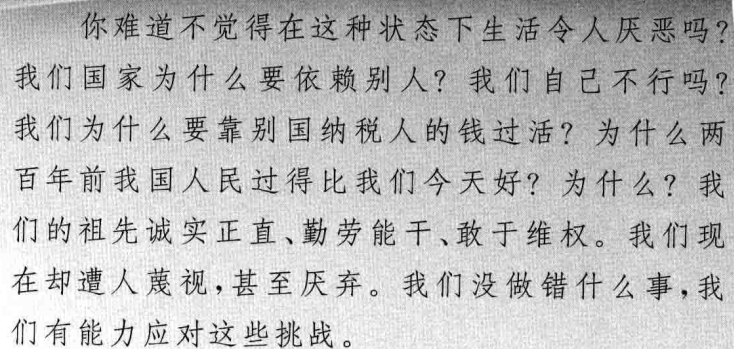 你难道不觉得在这种状态下生活令人厌恶吗?
我们国家为什么要依赖别人? 我们自己不行吗?
我们为什么要靠别国纳税人的钱过活? 为什么两
百年前我国人民过得比我们今天好? 为什么? 我
们的祖先诚实正直、勤劳能干、敢于维权。我们现
在却遭人蔑视,甚至厌弃。我们没做错什么事,我
们有能力应对这些挑战。